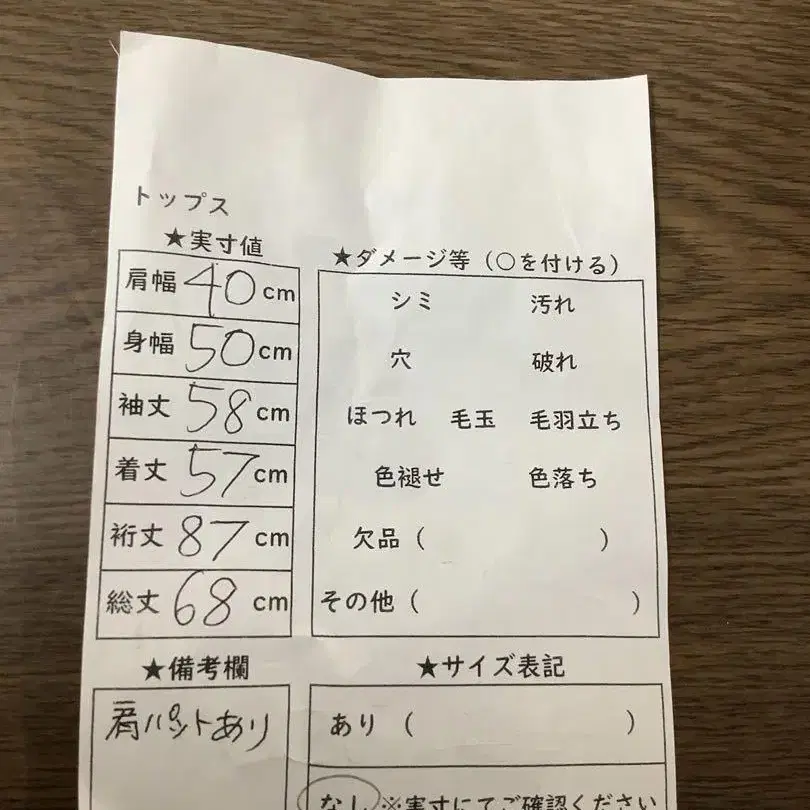 トップス
★実寸値
肩幅 40 cm
身幅 50 cm
袖丈 58 cm
着丈 57 cm
裄丈 87 cm
総丈 68 cm
★ダメージ等（○を付ける）
シミ 汚れ
穴 破れ
ほつれ 毛玉 毛羽立ち
色褪せ 色落ち
欠品（ ）
その他（ ）
★備考欄
肩パットあり
★サイズ表記
あり（ ）
なし ※実寸にてご確認ください